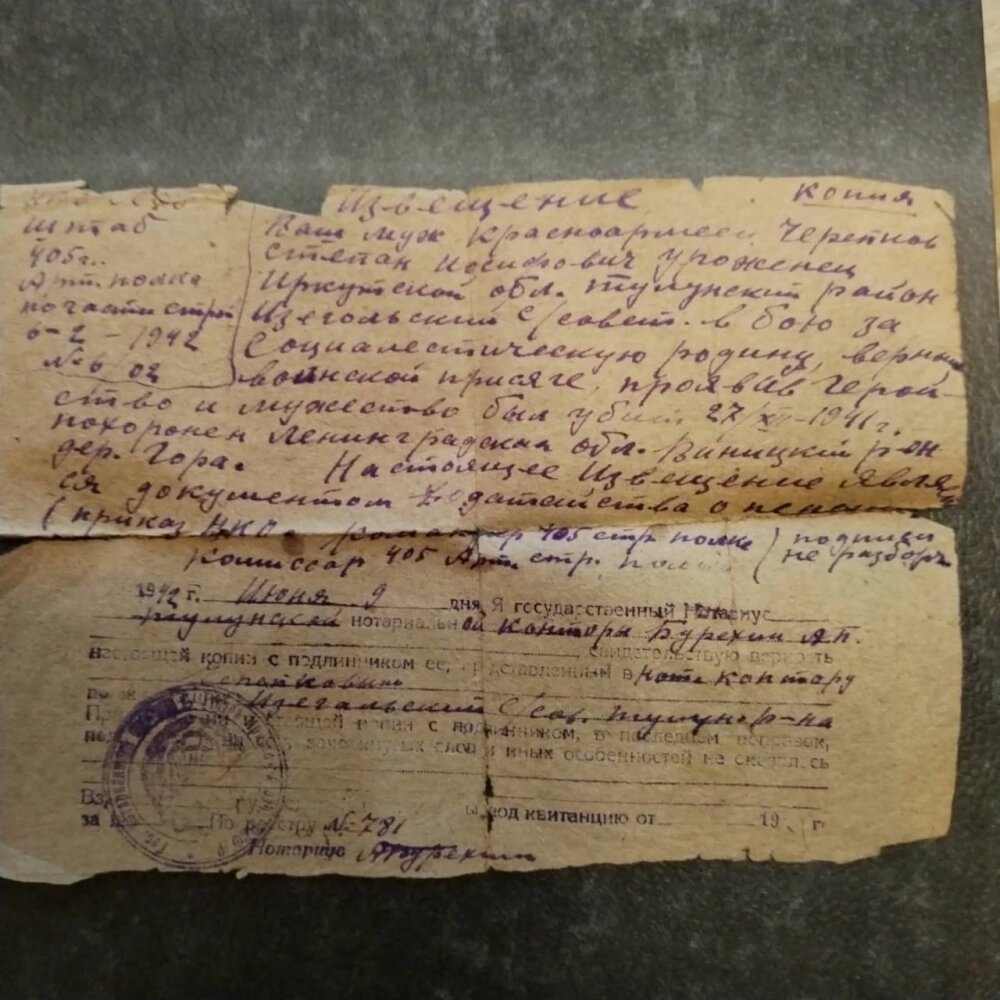 Извещение
копия
Штаб
405г.
Арт. полка
по части строй
6-2-1942
№ 6 02
Ваш муж красноармеец Черепнов
степан Иосифович уроженец
Иркутской обл. тулунский район
Изегольский С/совет. в бою за
Социалестическую родину, верный
воинской присяге, проявив герой-
ство и мужество был убит 27/XII-1941г.
похоронен Ленинградская обл. Виницкий р-он
дер. Гора. Настоящее Извещение являе
ся документом ходатайства о пенсии
(приказ НКО. командир 405 стр. полка
Комиссар 405 Арт. стр. полка
(подписи
не разборч
1942 г. Июня 9 дня, Я государственный Нотариус
тулунской нотариальной конторы Бурехин А.П.
свидетельствую верность
настоящей копии с подлинником ее, представленным в нот. контору
Изегальский С/сов. тулун. р-на
настоящей копии с подлинником, в последнем подчисток,
зачеркнутых слов и иных особенностей не оказалось
Вз
под квитанцию от 19 г.
за
По реестру № 781
Нотариус